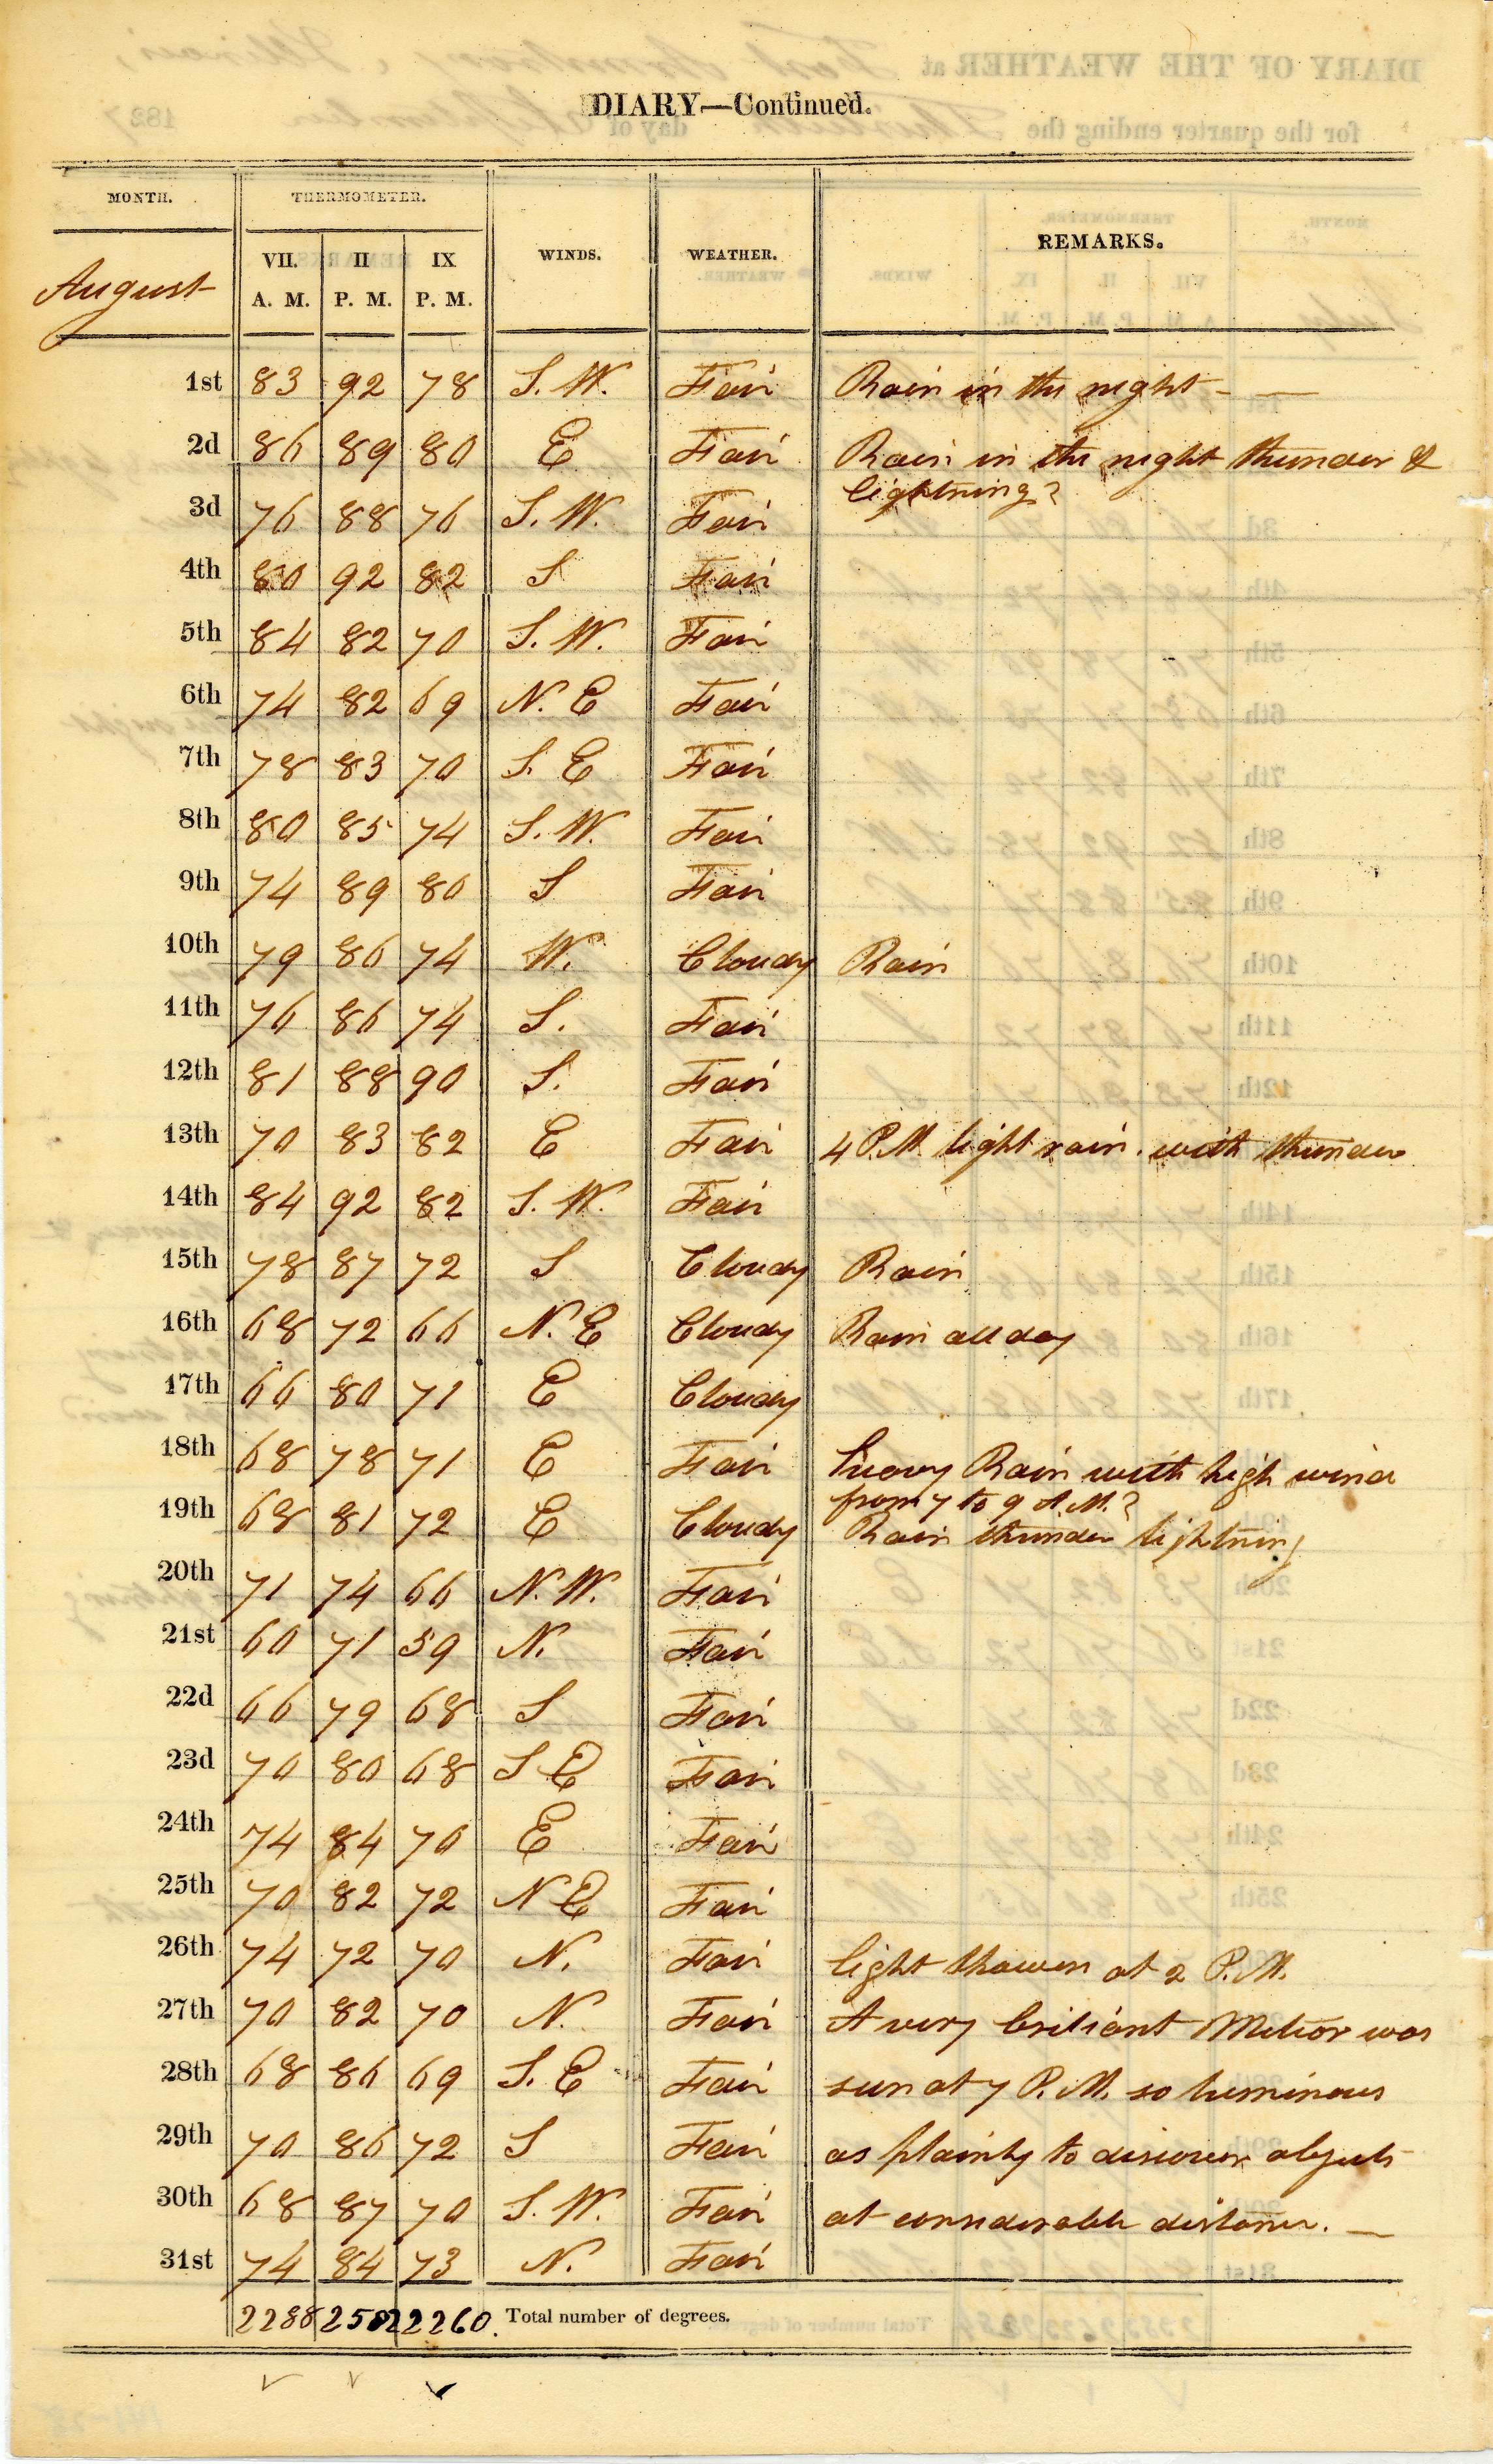 DIARY—Continued.
MONTH. THERMOMETER. WINDS. WEATHER. REMARKS.
August VII. A. M. II P. M. IX P. M.
1st 83 92 78 S. W. Fair Rain in the night —
2d 86 89 80 E Fair Rain in the night thunder &
lightning
3d 76 88 76 S. W. Fair
4th 80 92 82 S Fair
5th 84 82 70 S. W. Fair
6th 74 82 69 N. E Fair
7th 78 83 70 S. E Fair
8th 80 85 74 S. W. Fair
9th 74 89 80 S Fair
10th 79 86 74 W. Cloudy Rain
11th 76 86 74 S. Fair
12th 81 88 90 S. Fair
13th 70 83 82 E Fair 4 P.M. light rain. with thunder
14th 84 92 82 S. W. Fair
15th 78 87 72 S Cloudy Rain
16th 68 72 66 N. E Cloudy Rain all day
17th 66 80 71 E Cloudy
18th 68 78 71 E Fair Heavy Rain with high wind
from 7 to 9 A.M.
19th 68 81 72 E Cloudy Rain thunder lightning
20th 71 74 66 N. W. Fair
21st 60 71 59 N. Fair
22d 66 79 68 S Fair
23d 70 80 68 S E Fair
24th 74 84 70 E Fair
25th 70 82 72 N E Fair
26th 74 72 70 N. Fair light shower at 2 P.M.
27th 70 82 70 N. Fair A very briliant Meteor was
28th 68 86 69 S. E Fair seen at 7 P. M. so luminous
29th 70 86 72 S Fair as plainly to discover objects
30th 68 87 70 S. W. Fair at considerable distance. —
31st 74 84 73 N. Fair
2288 2582 2260. Total number of degrees.